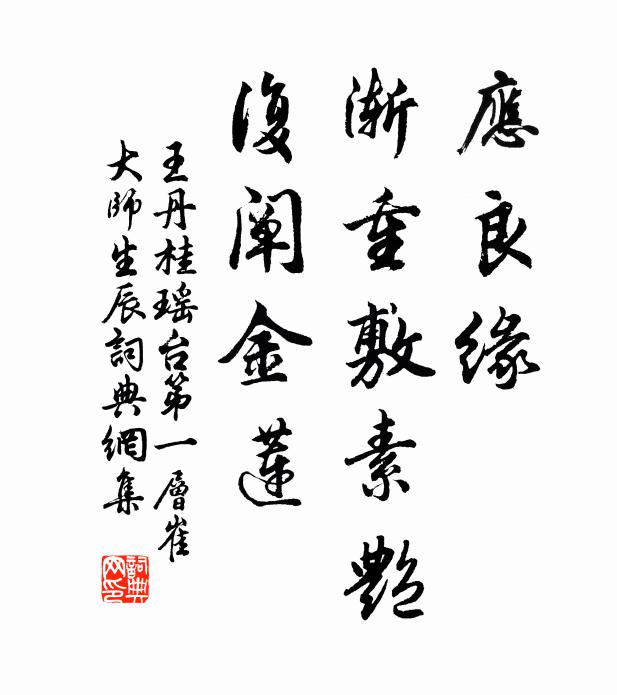 應良緣
漸重敷素艷
復阐金蓮
王丹桂瑶台第一層崔
大師生辰詞典網集
詞典
网印